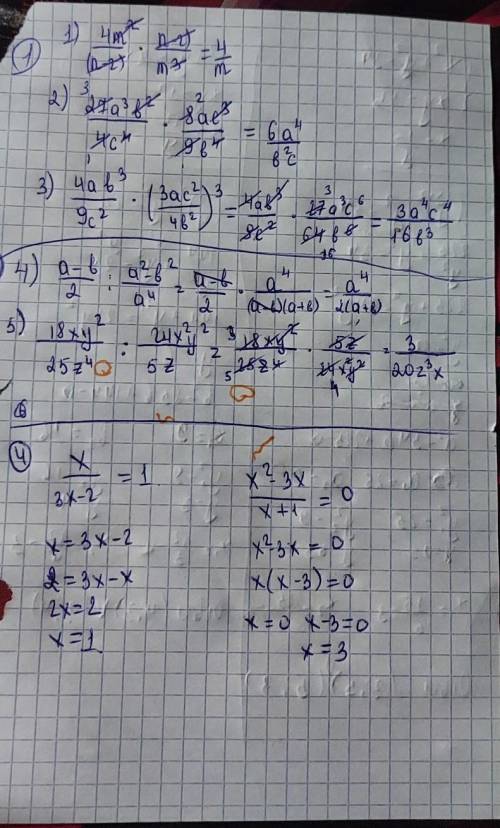 ①
1) 4m²/(n-2) · (n-2)/m³ = 4/m
2) ³27a³b²/4c⁴ · 8²ac³/9b⁴ = 6a⁴/b²c
3) 4ab³/9c² · (3ac²/4b²)³ = 4ab³/9c² · 27³a³c⁶/64b⁶ 16 = 3a⁴c⁴/16b³
4) a-b/2 : a²-b²/a⁴ = a-b/2 · a⁴/(a-b)(a+b) = a⁴/2(a+b)
5) 18xy²/25z⁴ : 24x²y²/5z = ³18xy²/₅25z⁴ · 5z/24x²y² 4 = 3/20z³x
④
x/3x-2 = 1
x=3x-2
2=3x-x
2x=2
x=1
x²-3x/x+1 = 0
x²-3x=0
x(x-3)=0
x=0 x-3=0
x=3